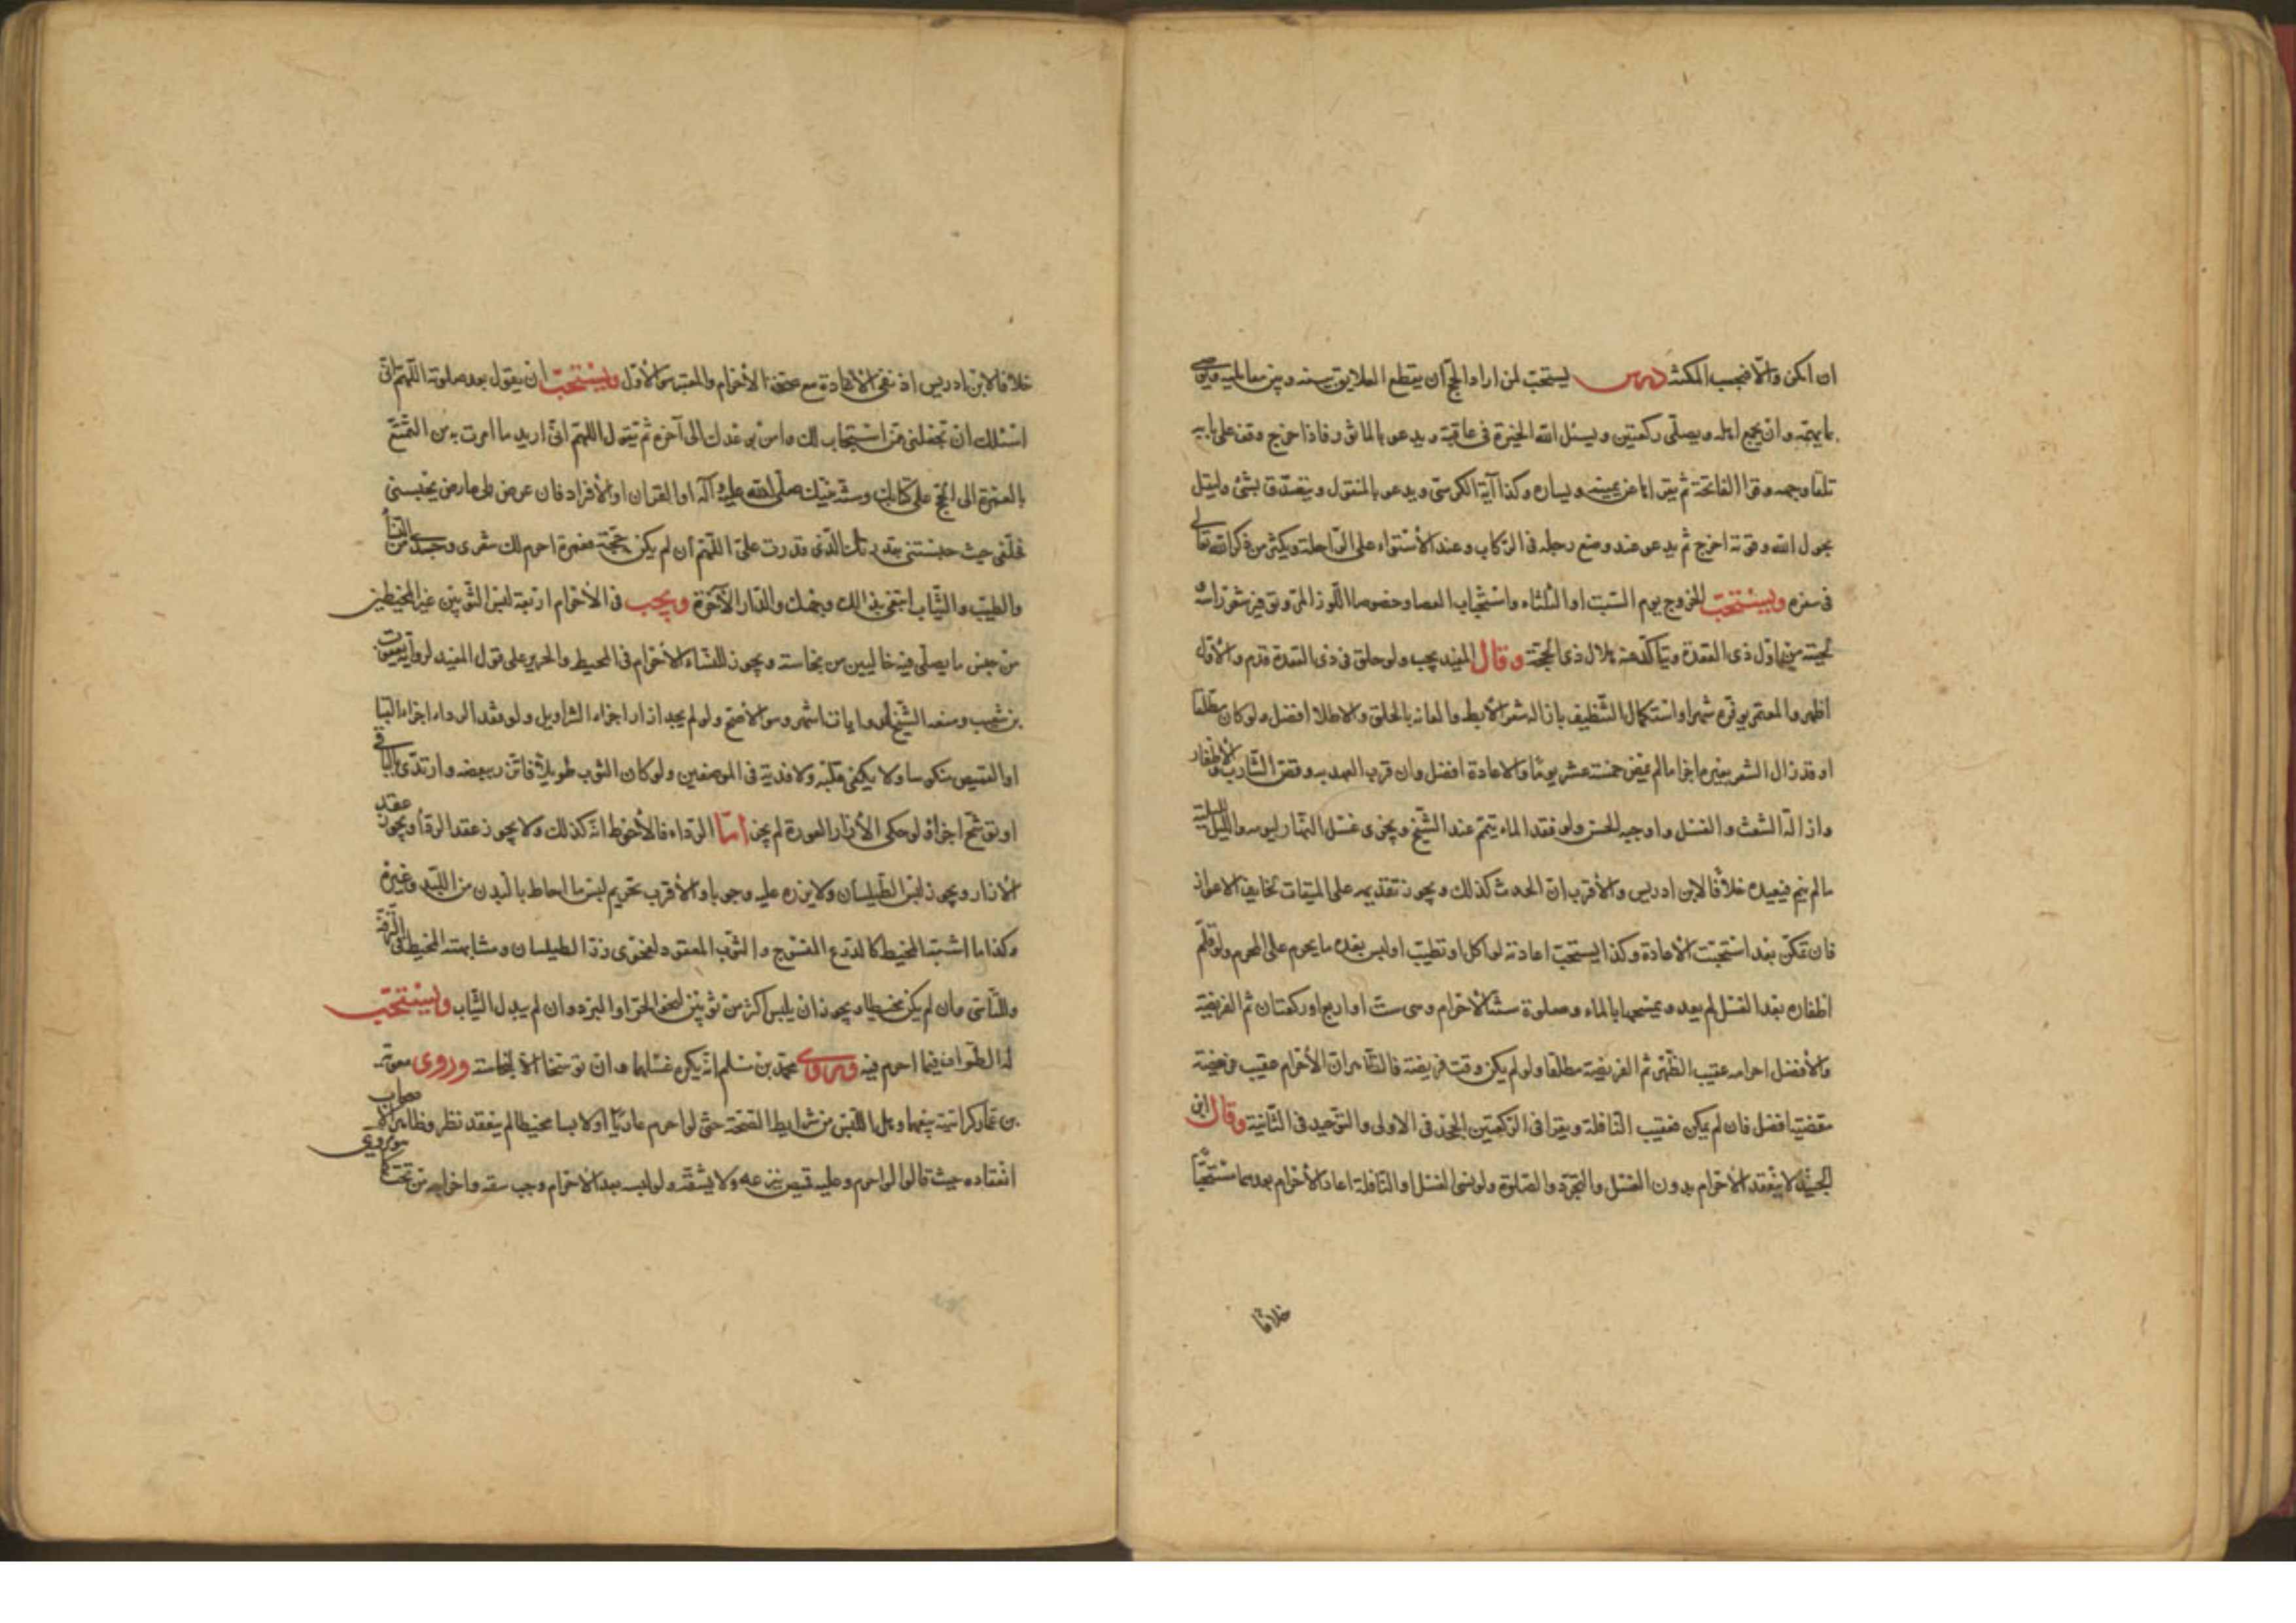 ان امكن والّا فيجب المكث درس يستحبّ لمن اراد الحجّ ان يقطع العلايق بينه وبين معامليه ويوصى
بما يهمّه وان يجمع اهله ويصلّى ركعتين ويسئل الله الخيرة فى عاقبته ويدعو بالماثور فاذا خرج وقف على بابه
تلقاء وجهه وقرا الفاتحة ثم يقراها عن يمينه ويساره وكذا آية الكرسى ويدعو بالمنقول ويتصدّق بشئ وليقل
بحول الله وقوّته اخرج ثم يدعو عند وضع رجله فى الركاب وعند الأستواء على الرّاحلة ويكثر من ذكر الله تعالى
فى سفره ويستحبّ الخروج يوم السّبت او الثلثاء واستصحاب العصا وخصوصا اللّوز المرّ وتوفير شعر راسه
ولحيته من اوّل ذى القعدة ويتأكّد عند هلال ذى الحجّة وقال المفيد يجب ولو حلق فى ذى القعدة فدم والأوّل
اظهر والمعتمر يوفّره شهرا واستكمال التّنظيف بازالة شعر الأبط والعانة بالحلق والاطلا افضل ولو كان مطّلعا
او قد زال الشعر بغيره اجزأ ما لم يمض خمسة عشر يومًا والاعادة افضل وان قرب العهد به وقصّ الشّارب والأظفار
وازالة الشعث والغسل واوجبه الحسن ولو فقد الماء تيمّم عند الشّيخ ويجزى غسل النّهار ليومه واللّيل لليلته
ما لم ينم فيعيده خلافًا لابن ادريس والأقرب انّ الحدث كذلك ويجوز تقديمه على الميقات لخايف الاعواز
فان تمكّن بعد استحبّت الأعادة وكذا يستحبّ اعادته لو اكل او تطيّب او لبس بعده ما يحرم على المحرم ولو قلّم
اظفاره بعد الغسل لم يعد ويمسحها بالماء وصلوة سنّة الأحرام وهى ستّ او اربع او ركعتان ثم الفريضة
والأفضل احرامه عقيب الظّهر ثم الفريضة مطلقا ولو لم يكن وقت فريضة فالظّاهر انّ الأحرام عقيب فريضة
مقضيّة افضل فان لم يكن فعقيب النّافلة ويقرا فى الرّكعتين الجحد فى الاولى والتّوحيد فى الثّانية وقال ابن
الجنيد لا ينعقد الأحرام بدون الغسل والتجرّد والصّلوة ولو نسى الغسل او النّافلة اعاد الأحرام بعدهما مستحبًّا
خلافًا
خلافا لابن ادريس اذ نفى الأعادة مع صحّة الأحرام والمعتبر هو الأوّل ويستحبّ ان يقول بعد صلوته اللّهم انّى
اسئلك ان تجعلنى ممّن استجاب لك وآمن بوعدك الى آخره ثم يقول اللهمّ انّى اريد ما امرت به من التمتّع
بالعمرة الى الحجّ على كتابك وسنّة نبيّك صلّى الله عليه وآله او القران او الأفراد فان عرض لى عارض يحبسنى
فحلّنى حيث حبستنى بقدرتك الّذى قدرت علىّ اللّهمّ ان لم يكن حجّة فعمرة احرم لك شعرى وجسدى من النّساء
والطيب والثّياب ابتغى بذالك وجهك والدّار الآخرة ويجب فى الأحرام اربعة لبس الثّوبين غير المخيطين
من جنس ما يصلّى فيه خاليين من نجاسة ويجوز للنّساء الأحرام فى المخيط والحرير على قول المفيد لرواية يعقوب
بن شعيب ومنعه الشّيخ لروايات اشهر وهو الأصحّ ولو لم يجد ازارا اجزأه السّراويل ولو فقد الرداء اجزأه القبا
او القميص منكوسا ولا يكفى قلبه ولا فدية فى الموضعين ولو كان الثوب طويلا فاتّزر ببعضه وارتدى بالباقى
او توشّح اجزأ ولو حكى الأزار العورة لم يجز امّا الرّداء فالأحوط انّه كذلك ولا يجوز عقد الرداء ويجوز عقد
الأزار ويجوز لبس الطّيلسان ولا يزره عليه وجوبا والأقرب تحريم لبس ما احاط بالبدن من اللّبد وغيره
وكذا ما اشبه المخيط كالدّرع المنسوج والثّوب المعقود لفحوى زرّ الطيلسان ومشابهته المخيط فى الترفّه
وللنّاسى وان لم يكن مخيطا ويجوز ان يلبس اكثر من ثوبين لخوف الحرّ او البرد وان لم يبدل الثّياب ويستحبّ
له الطّواف فيما احرم فيه وروى محمّد بن مسلم انّه يكره غسلها وان توسّخا الّا لنجاسة وروى معوية
بن عمّار كراهية بيعهما وهل اللّبس من شرايط الصّحة حتّى لو احرم عاريًا او لابسا مخيطا لم ينعقد نظر وظاهر الأصحاب
انعقاده حيث قالوا لو احرم وعليه قميص نزعه ولا يشقّه ولو لبسه بعد الأحرام وجب شقّه واخراجه من تحته كما هو مروى